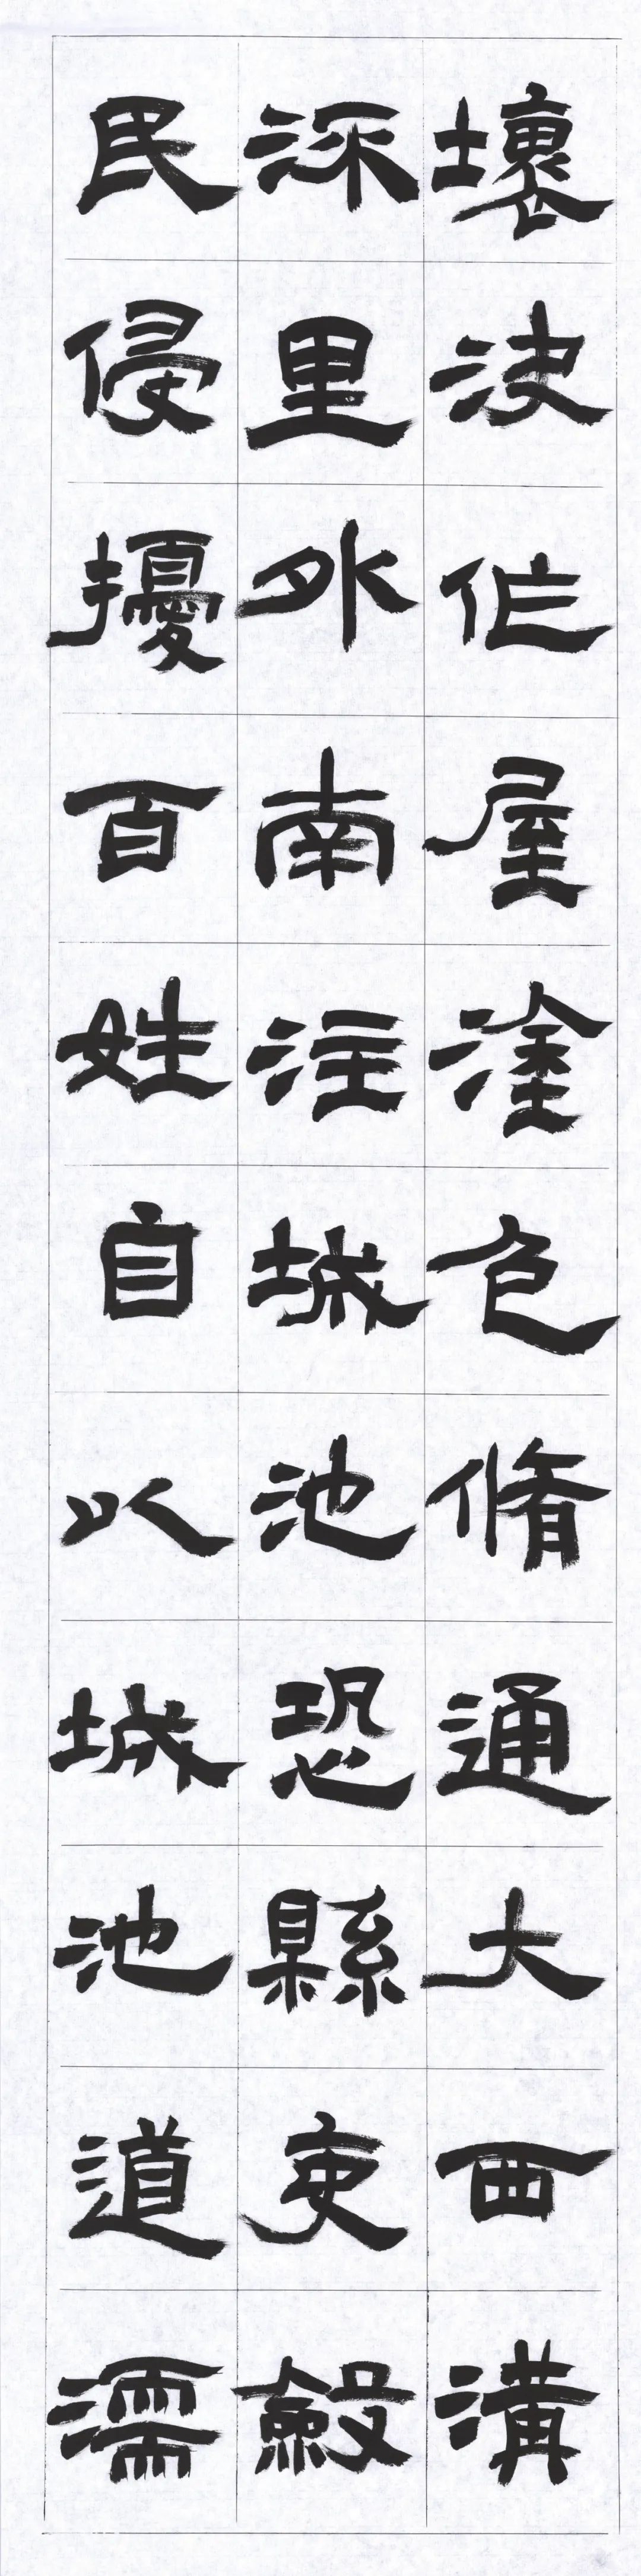 壞決作屋塗色脩通大西溝
深里外南注城池恐縣吏斂
民侵擾百姓自以城池道濡